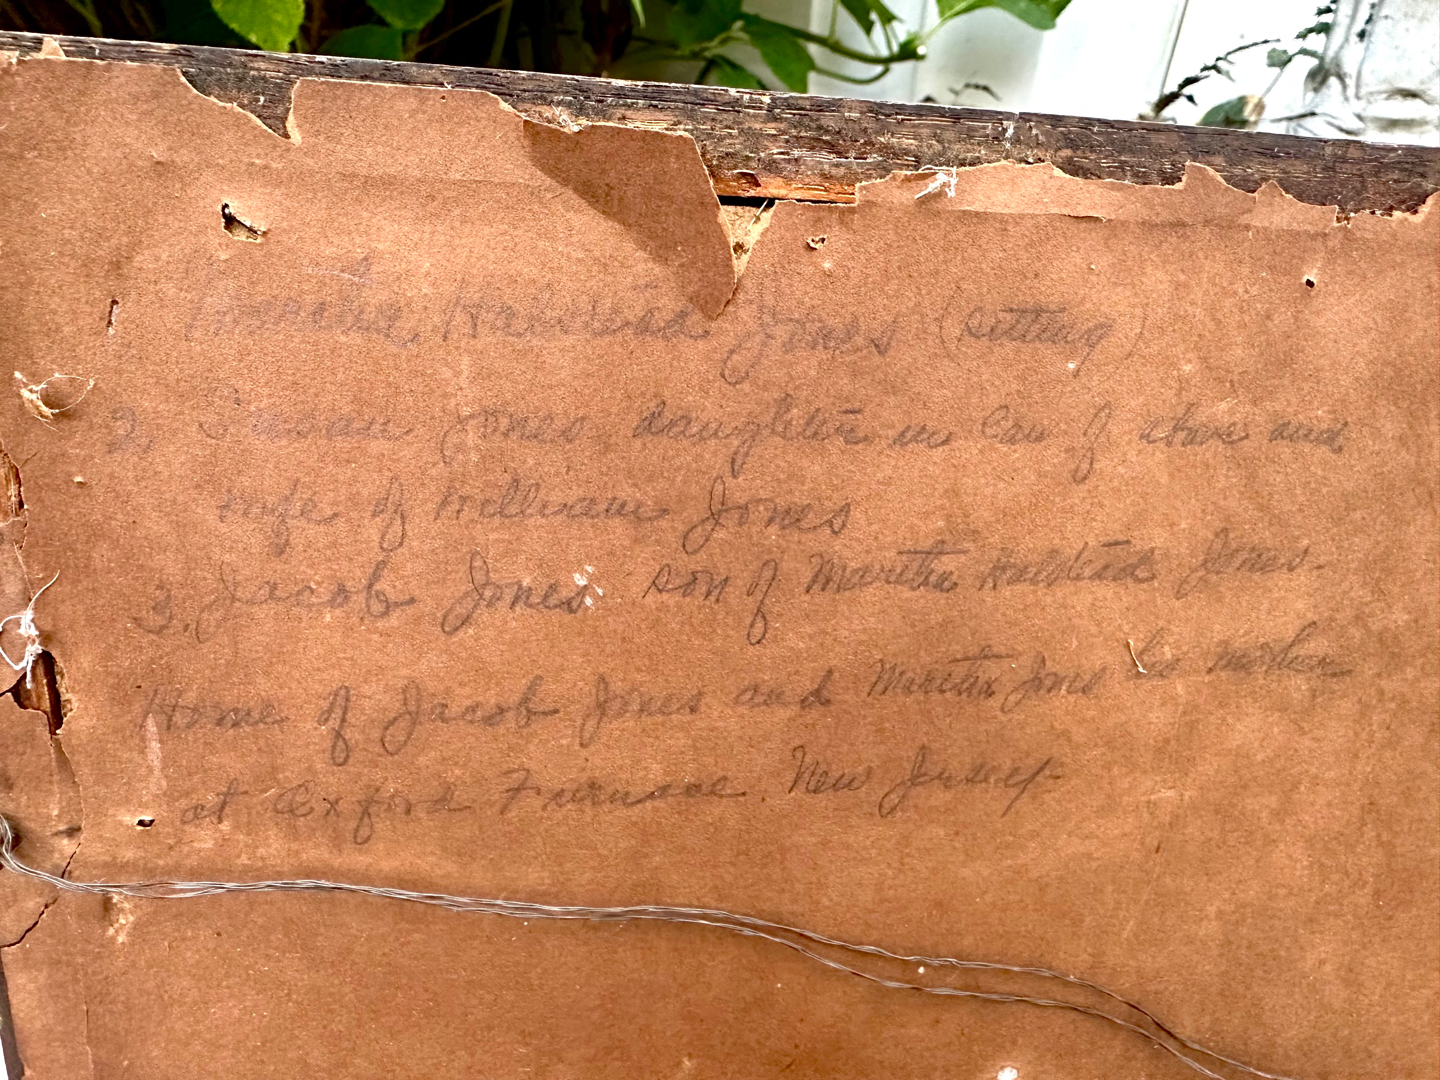 1. Maretta Halstead Jones (sitting)
2. Susan Jones, daughter in law of above and
wife of William Jones
3. Jacob Jones son of Maretta Halstead Jones.
Home of Jacob Jones and Maretta Jones his mother
at Oxford Furnace. New Jersey